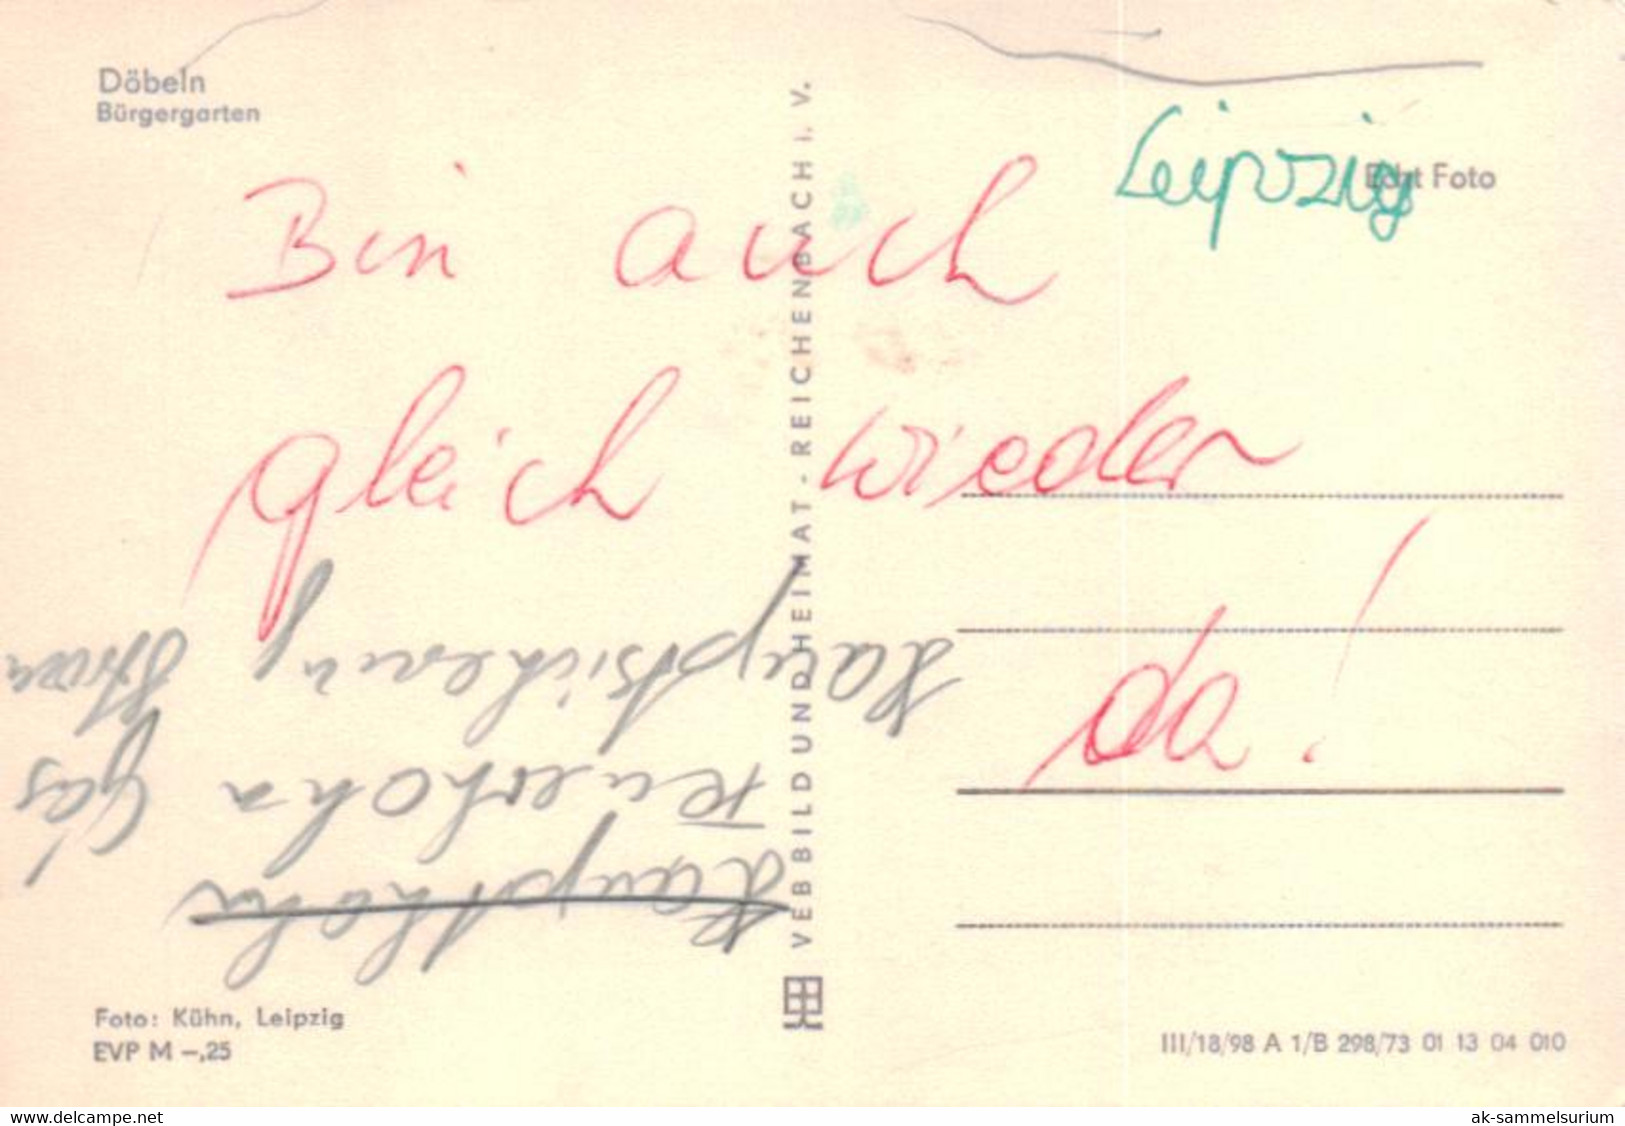 Döbeln
Bürgergarten
Leipzig
Echt Foto
Bin auch
gleich wieder
da!
VEB BILD UND HEIMAT - REICHENBACH i. V.
Haupthahn
Gas
Hauptsicherung
Foto: Kühn, Leipzig
EVP M –,25
III/18/98 A 1/B 298/73 01 13 04 010
www.delcampe.net
ak-sammelsurium